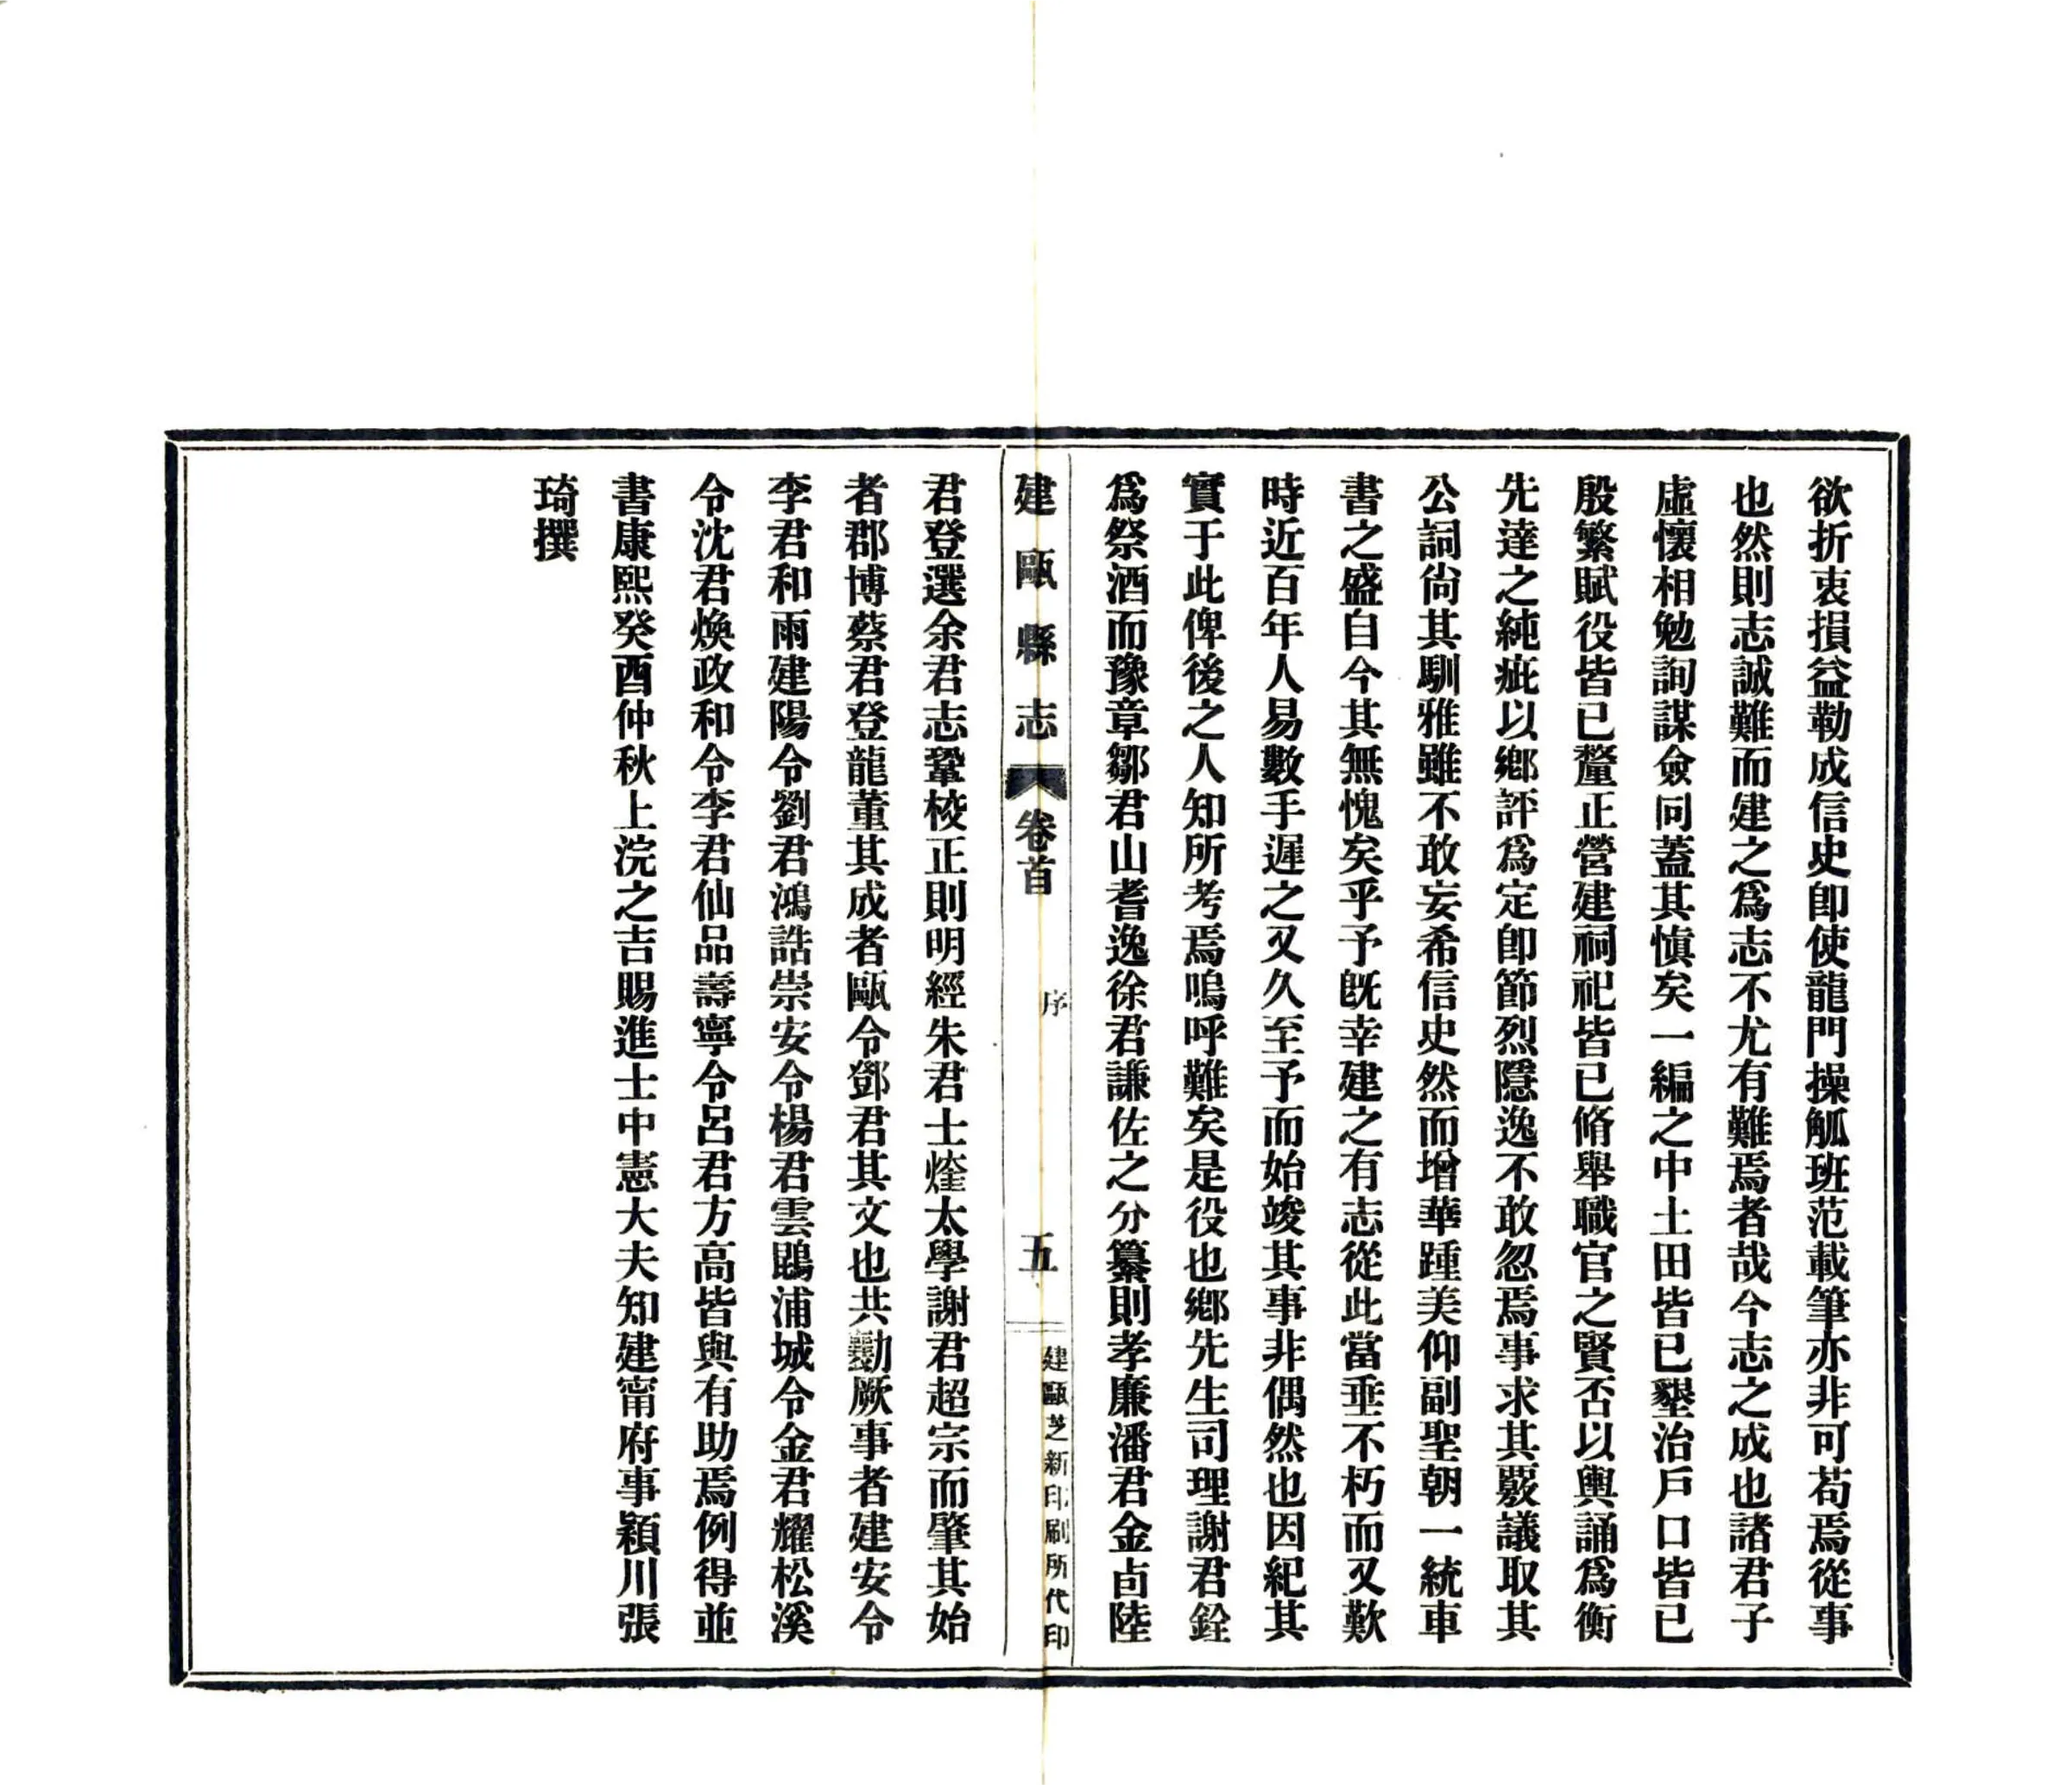 欲折衷損益勒成信史卽使龍門操觚班范載筆亦非可苟焉從事
也然則志誠難而建之爲志不尤有難焉者哉今志之成也諸君子
虛懷相勉詢謀僉同蓋其愼矣一編之中土田皆已墾治戶口皆已
殷繁賦役皆已釐正營建祠祀皆已脩舉職官之賢否以輿誦爲衡
先達之純疵以鄕評爲定卽節烈隱逸不敢忽焉事求其覈議取其
公詞尙其馴雅雖不敢妄希信史然而增華踵美仰副聖朝一統車
書之盛自今其無愧矣乎予旣幸建之有志從此當垂不朽而又歎
時近百年人易數手遲之又久至予而始竣其事非偶然也因紀其
實于此俾後之人知所考焉嗚呼難矣是役也鄕先生司理謝君銓
爲祭酒而豫章鄒君山耆逸徐君謙佐之分纂則孝廉潘君金卣陸
建甌縣志 卷首 序 五 建甌芝新印刷所代印
君登選余君志鞏校正則明經朱君士燵太學謝君超宗而肇其始
者郡博蔡君登龍董其成者甌令鄧君其文也共勷厥事者建安令
李君和雨建陽令劉君鴻誥崇安令楊君雲鶤浦城令金君耀松溪
令沈君煥政和令李君仙品壽寧令呂君方高皆與有助焉例得並
書康熙癸酉仲秋上浣之吉賜進士中憲大夫知建甯府事潁川張
琦撰